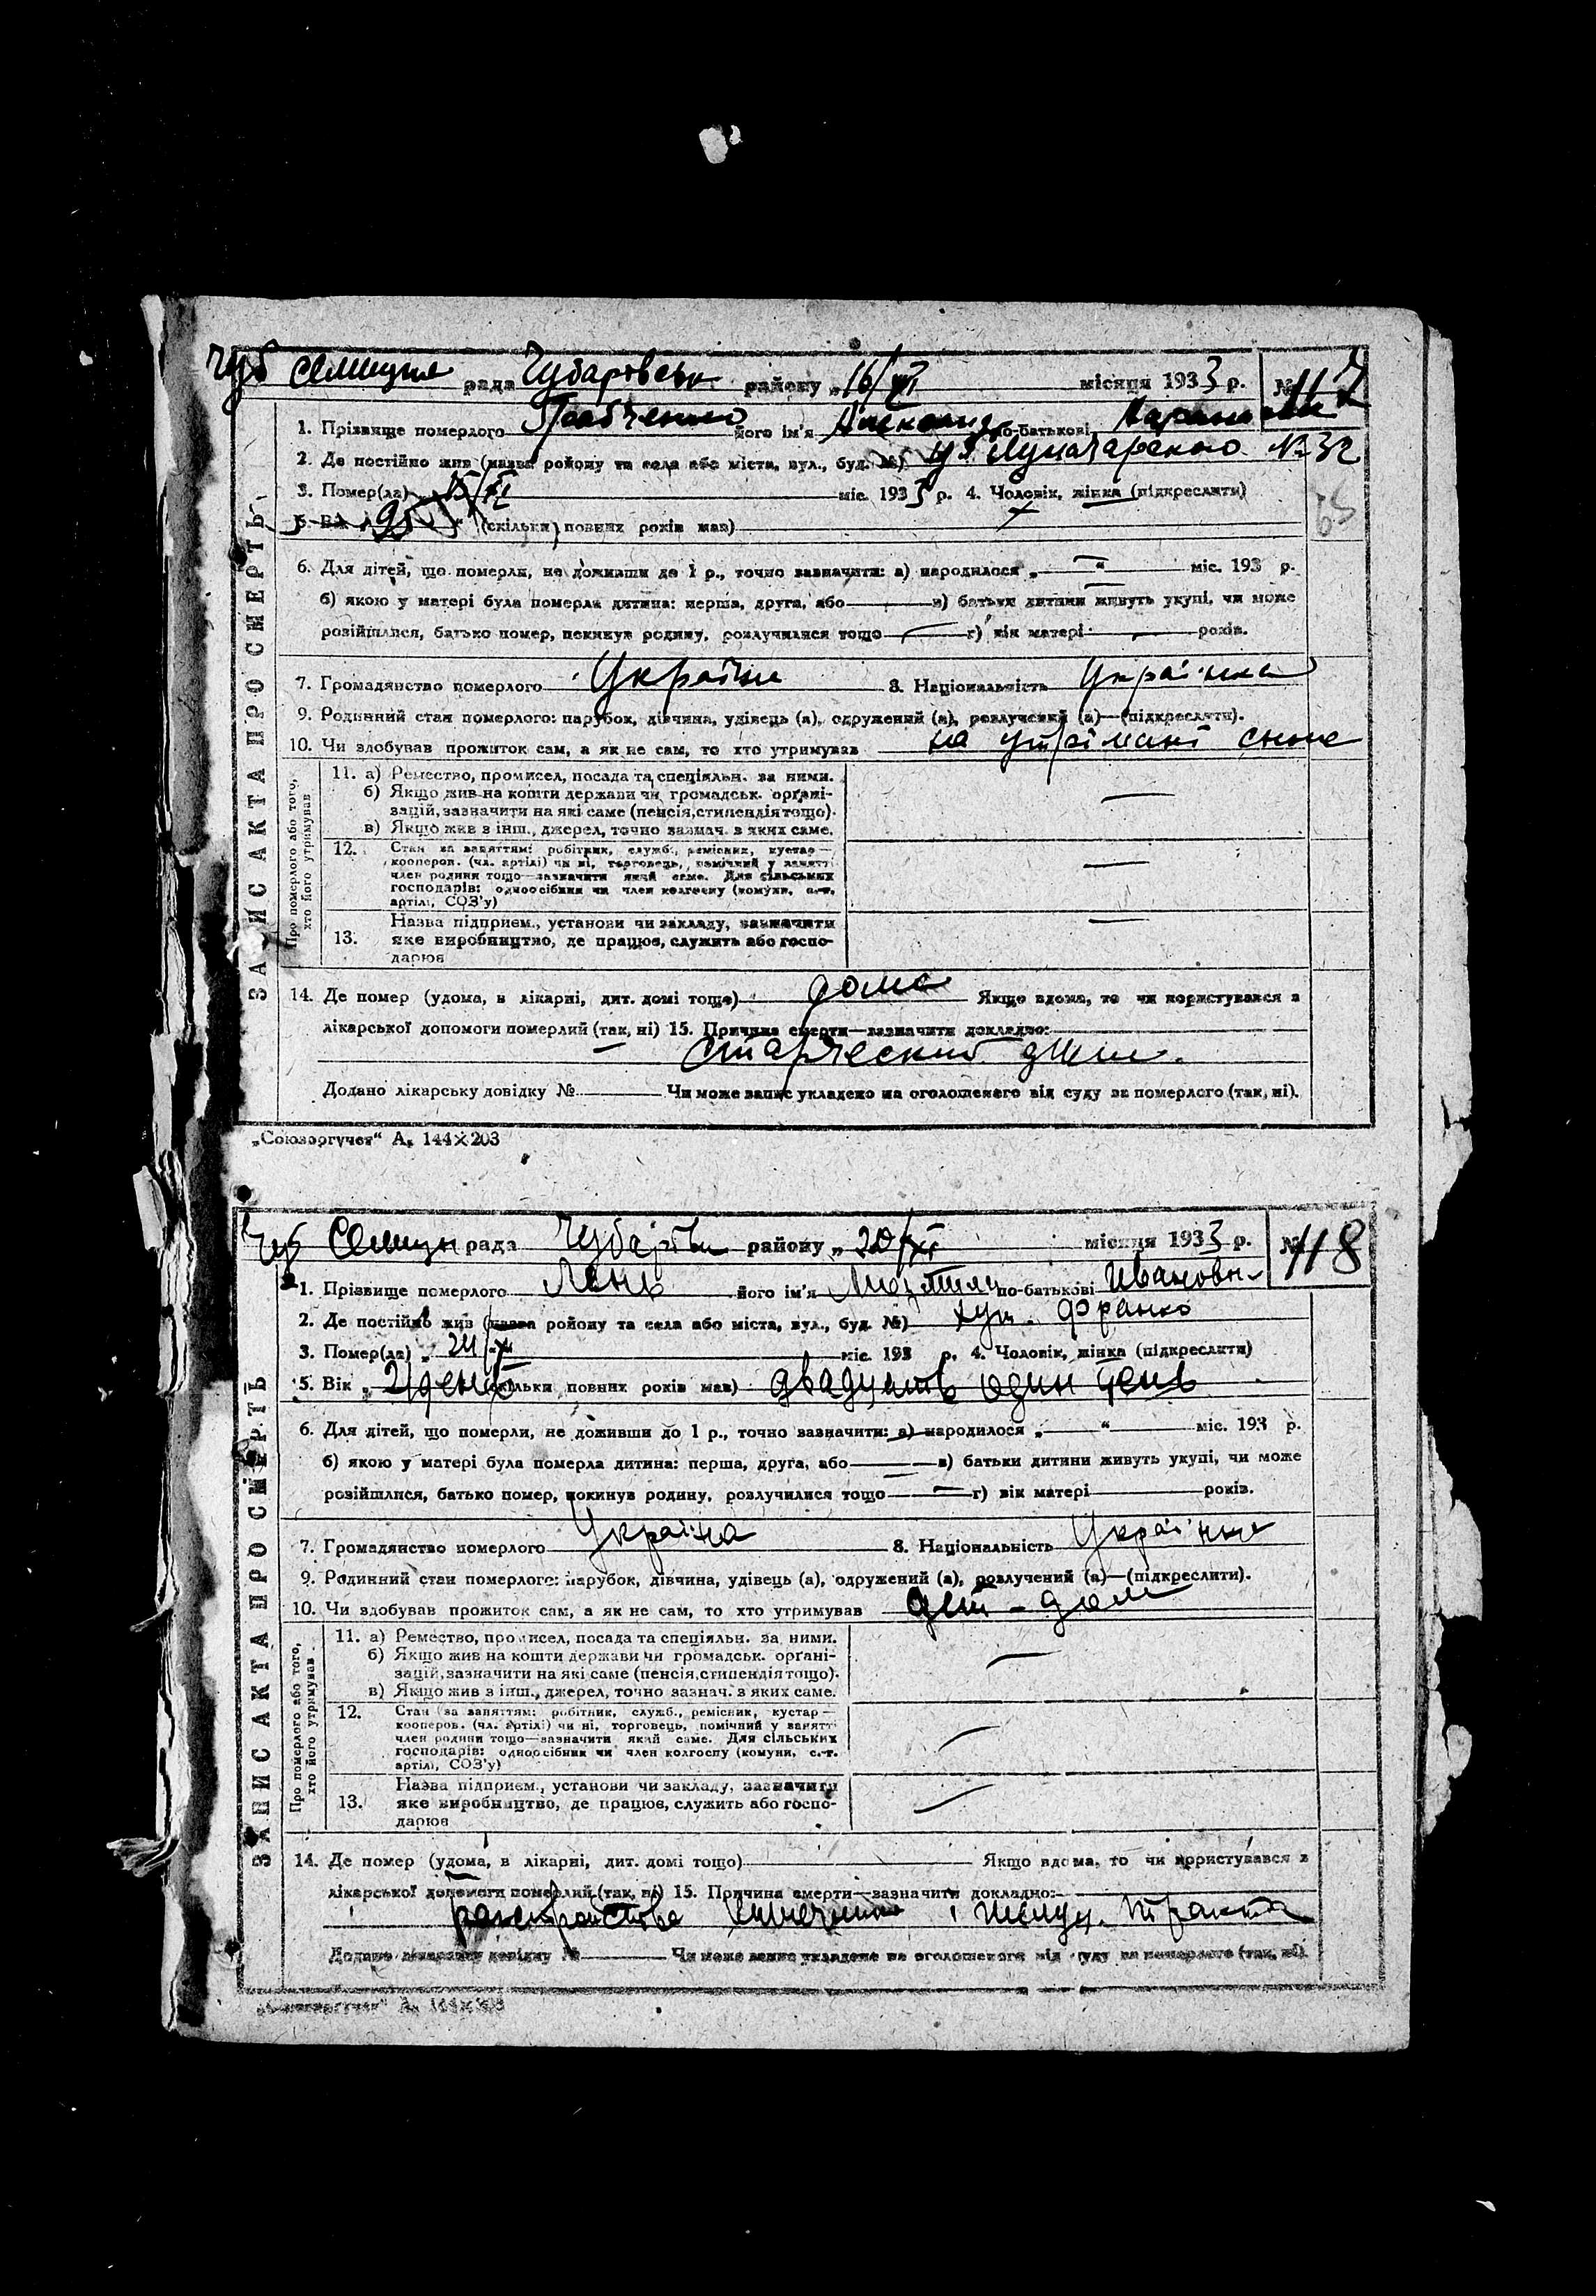 Чуб Селищна рада Чубарівськ району „16/XI місяця 1933 р. № 117
ЗАПИС АКТА ПРО СМЕРТЬ
1. Прізвище померлого його ім'я по-батькові
2. Де постійно жив (назва району та села або міста, вул., буд. №) ул Луначарского № 32
3. Помер(ла) „ 15/XI міс. 1933 р. 4. Чоловік, жінка (підкреслити)
5. Вік „ 95 " (скільки повних років мав)
6. Для дітей, що померли, не доживши до 1 р., точно зазначити: а) народилося „ — " міс. 193 р.
б) якою у матері була померла дитина: перша, друга, або — в) батьки дитини живуть укупі, чи може
розійшлися, батько помер, покинув родину, розлучилися тощо — г) вік матері — років.
7. Громадянство померлого Україна 8. Національність Українка
9. Родинний стан померлого: парубок, дівчина, удівець (а), одружений (а), розлучений (а)—(підкреслити).
10. Чи здобував прожиток сам, а як не сам, то хто утримував на утрімані сина
Про померлого або того, хто його утримував
11. а) Ремество, промисел, посада та спеціяльн. за ними.
б) Якщо жив на кошти держави чи громадськ. органі-
зацій, зазначити на які саме (пенсія, стипендія тощо).
в) Якщо жив з інш., джерел, точно зазнач. з яких саме.
12. Стан за заняттям: робітник, служб., ремісник, кустар—
кооперов. (чл. артілі) чи ні, торговець, помічний у занятті
член родини тощо—зазначити який саме. Для сільських
господарів: одноосібник чи член колгоспу (комуни, с.-г.
артілі, СОЗ'у)
13. Назва підприєм., установи чи закладу, зазначити
яке виробництво, де працює, служить або госпо-
дарює
14. Де помер (удома, в лікарні, дит. домі тощо) дома Якщо вдома, то чи користувався з
лікарської допомоги померлий (так, ні) 15. Причина смерти—зазначити докладно:
старческий
Додано лікарську довідку № — Чи може запис укладено на оголошеного від суду за померлого (так, ні).
„Союзоргучет" А₅ 144×203
Чуб Селищн рада Чубарівськ району „ 20/XI місяця 1933 р. № 118
ЗАПИС АКТА ПРО СМЕРТЬ
1. Прізвище померлого Лень його ім'я по-батькові Ивановн
2. Де постійно жив (назва району та села або міста, вул., буд. №) хут. Франко
3. Помер(ла) „ міс. 193 р. 4. Чоловік, жінка (підкреслити)
5. Вік „ 21 день (скільки повних років мав) двадцать один день
6. Для дітей, що померли, не доживши до 1 р., точно зазначити: а) народилося „ — " — міс. 193 р.
б) якою у матері була померла дитина: перша, друга, або — в) батьки дитини живуть укупі, чи може
розійшлися, батько помер, покинув родину, розлучилися тощо — г) вік матері — років.
7. Громадянство померлого Україна 8. Національність Українка
9. Родинний стан померлого: парубок, дівчина, удівець (а), одружений (а), розлучений (а)—(підкреслити).
10. Чи здобував прожиток сам, а як не сам, то хто утримував дет - дом
Про померлого або того, хто його утримував
11. а) Ремество, промисел, посада та спеціяльн. за ними.
б) Якщо жив на кошти держави чи громадськ. органі-
зацій, зазначити на які саме (пенсія, стипендія тощо).
в) Якщо жив з інш., джерел, точно зазнач. з яких саме.
12. Стан за заняттям: робітник, служб., ремісник, кустар—
кооперов. (чл. артілі) чи ні, торговець, помічний у занятті
член родини тощо—зазначити який саме. Для сільських
господарів: одноосібник чи член колгоспу (комуни, с.-г.
артілі, СОЗ'у)
13. Назва підприєм., установи чи закладу, зазначити
яке виробництво, де працює, служить або госпо-
дарює
14. Де помер (удома, в лікарні, дит. домі тощо) Якщо вдома, то чи користувався з
лікарської допомоги померлий (так, ні) 15. Причина смерти—зазначити докладно:
і желуд. тракта
Додано лікарську довідку № — Чи може запис укладено на оголошеного від суду за померлого (так, ні).
„Союзоргучет" А₅ 144×203